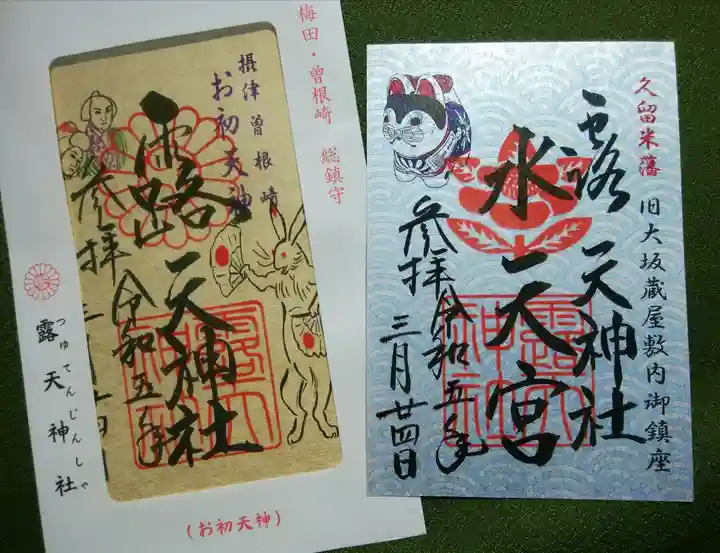 梅田・曽根崎 総鎮守
摂津曽根崎
お初天神
露天神社
参拝 令和五年
三月廿四日
露天神社
つゆてんじんしゃ
(お初天神)
久留米藩 旧大坂蔵屋敷内御鎮座
露天神社
水天宮
参拝 令和五年
三月廿四日